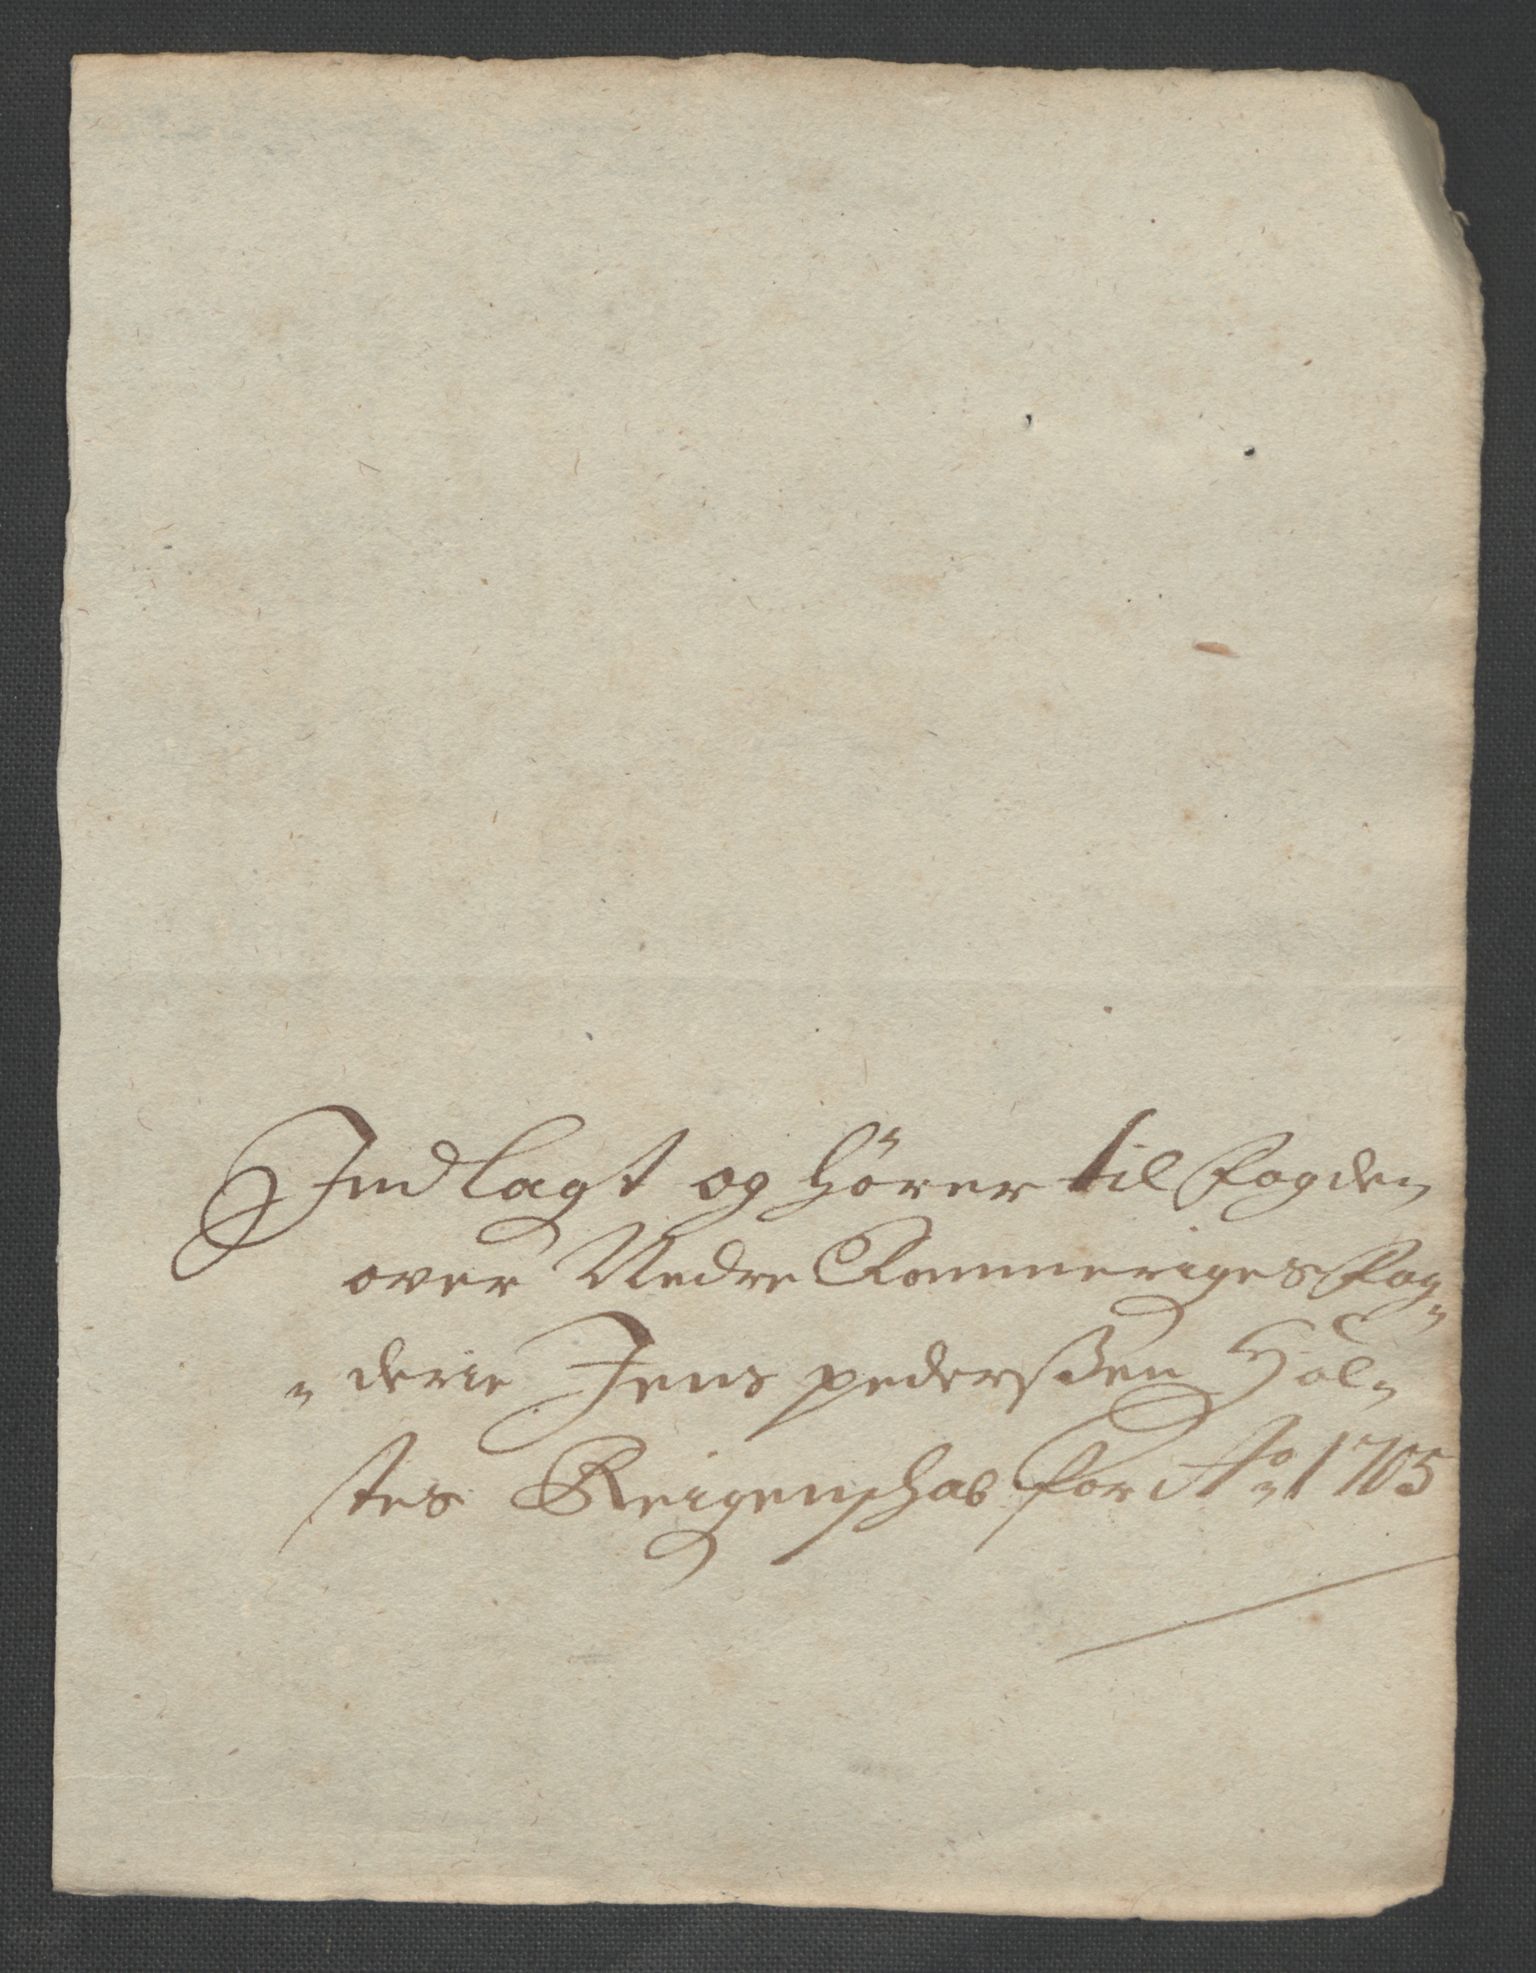 Indlagt og hörer til fogden
over Nedre Rommeriges fog-
-derie Jens pederßen Hol-
stes Reigenschab for Ao 1705